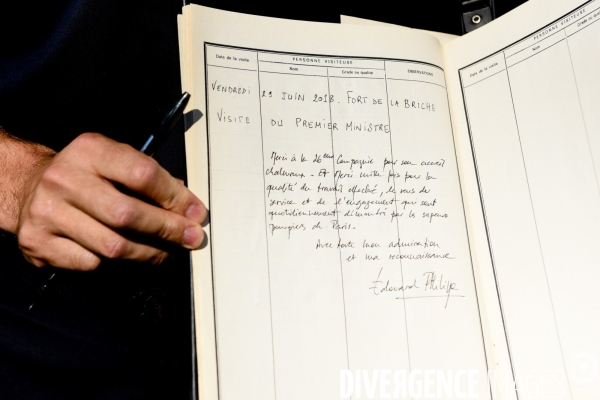 Date de la visite
PERSONNE VISITEUSE
Nom
Grade ou Qualité
OBSERVATIONS
VENDREDI 29 JUIN 2018. FORT DE LA BRICHE
VISITE DU PREMIER MINISTRE
Merci à la 26ème Compagnie pour son accueil
chaleureux. Et Merci mille fois pour la
qualité du travail effectué, le sens du
service et de l'engagement qui sont
quotidiennement démontrés par les sapeurs
pompiers de Paris.
Avec toute mon admiration
et ma reconnaissance
Édouard Philippe
Date de la visite
DIVERGENCE